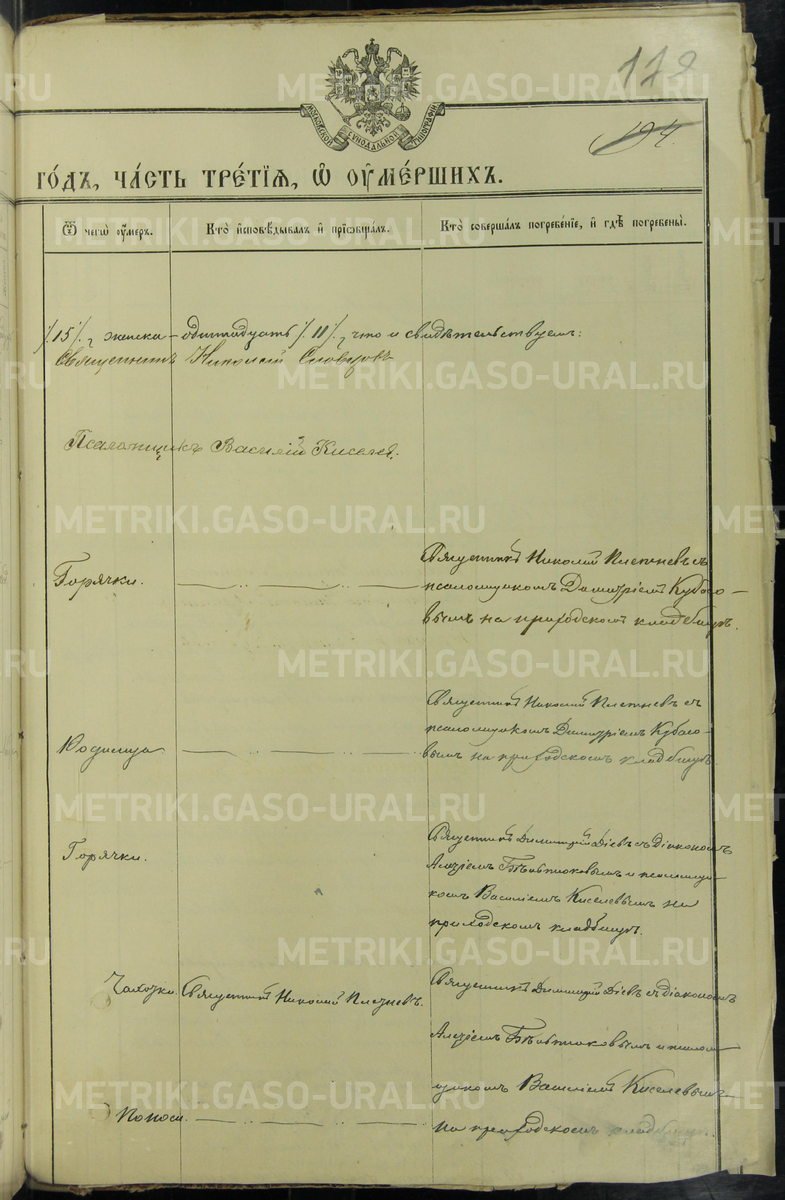 172
194.
МОСКОВСКОЙ СѴНОДАЛЬНОЙ ТИПОГРАФІИ
го́дъ, ча́сть тре́тїѧ, ѡ҆ оу҆ме́ршихъ.
Ѿ чегѡ̀ оу҆́меръ.
Кто̀ и҆сповѣ́дывалъ и҆ прїѡбща́лъ.
Кто̀ соверша́лъ погребе́нїе, и҆ гдѣ̀ погребены̀.
/15/, женска одиннадцать /11/, что и свидѣтельствуемъ:
Священникъ Николай Словцовъ
Псаломщикъ Василій Киселевъ.
Горячки.
Священникъ Николай Плетневъ съ
псаломщикомъ Димитріемъ Кубасо-
вымъ на приходскомъ кладбищѣ.
Родимца
Священникъ Николай Плетневъ съ
псаломщикомъ Димитріемъ Кубасо-
вымъ на приходскомъ кладбищѣ.
Горячки.
Священникъ Димитрій Діевъ съ діакономъ
Алексіемъ и псаломщи-
комъ Василіемъ Киселевымъ на
приходскомъ кладбищѣ.
Чахотки.
Священникъ Николай Плетневъ.
Священникъ Димитрій Діевъ съ діакономъ
Алексіемъ и псалом
щикомъ Василіемъ Киселевымъ
Поноса.
на приходскомъ кладбищѣ.
METRIKI.GASO-URAL.RU